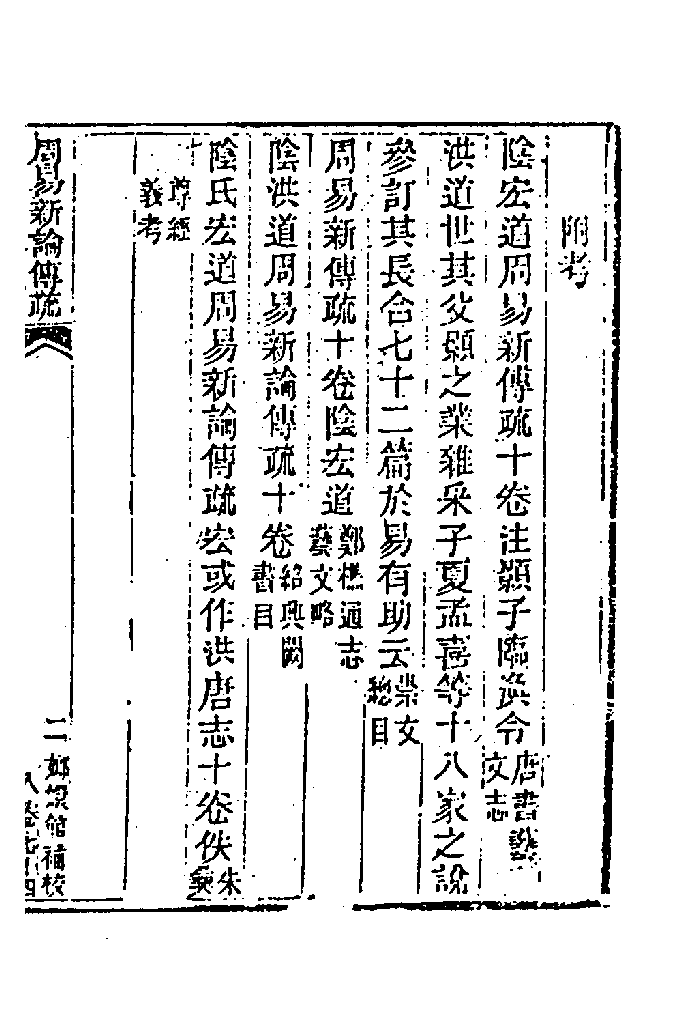 附考
陰宏道周易新傳疏十卷注顥子臨渙令唐書藝文志
洪道世其父顥之業雜采子夏孟喜等十八家之說
參訂其長合七十二篇於易有助云崇文總目
周易新傳疏十卷陰宏道鄭樵通志藝文略
陰洪道周易新論傳疏十卷紹興闕書目
陰氏宏道周易新論傳疏宏或作洪唐志十卷佚朱彝
尊經義考
周易新論傳疏
二
嫏嬛館補校